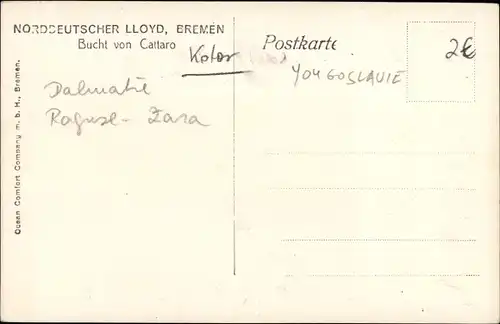 NORDDEUTSCHER LLOYD, BREMEN
Bucht von Cattaro
Kotor
Postkarte
2€
YOUGOSLAVIE
Dalmatie
Raguse - Zara
Queen Comfort Company m. b. H., Bremen.